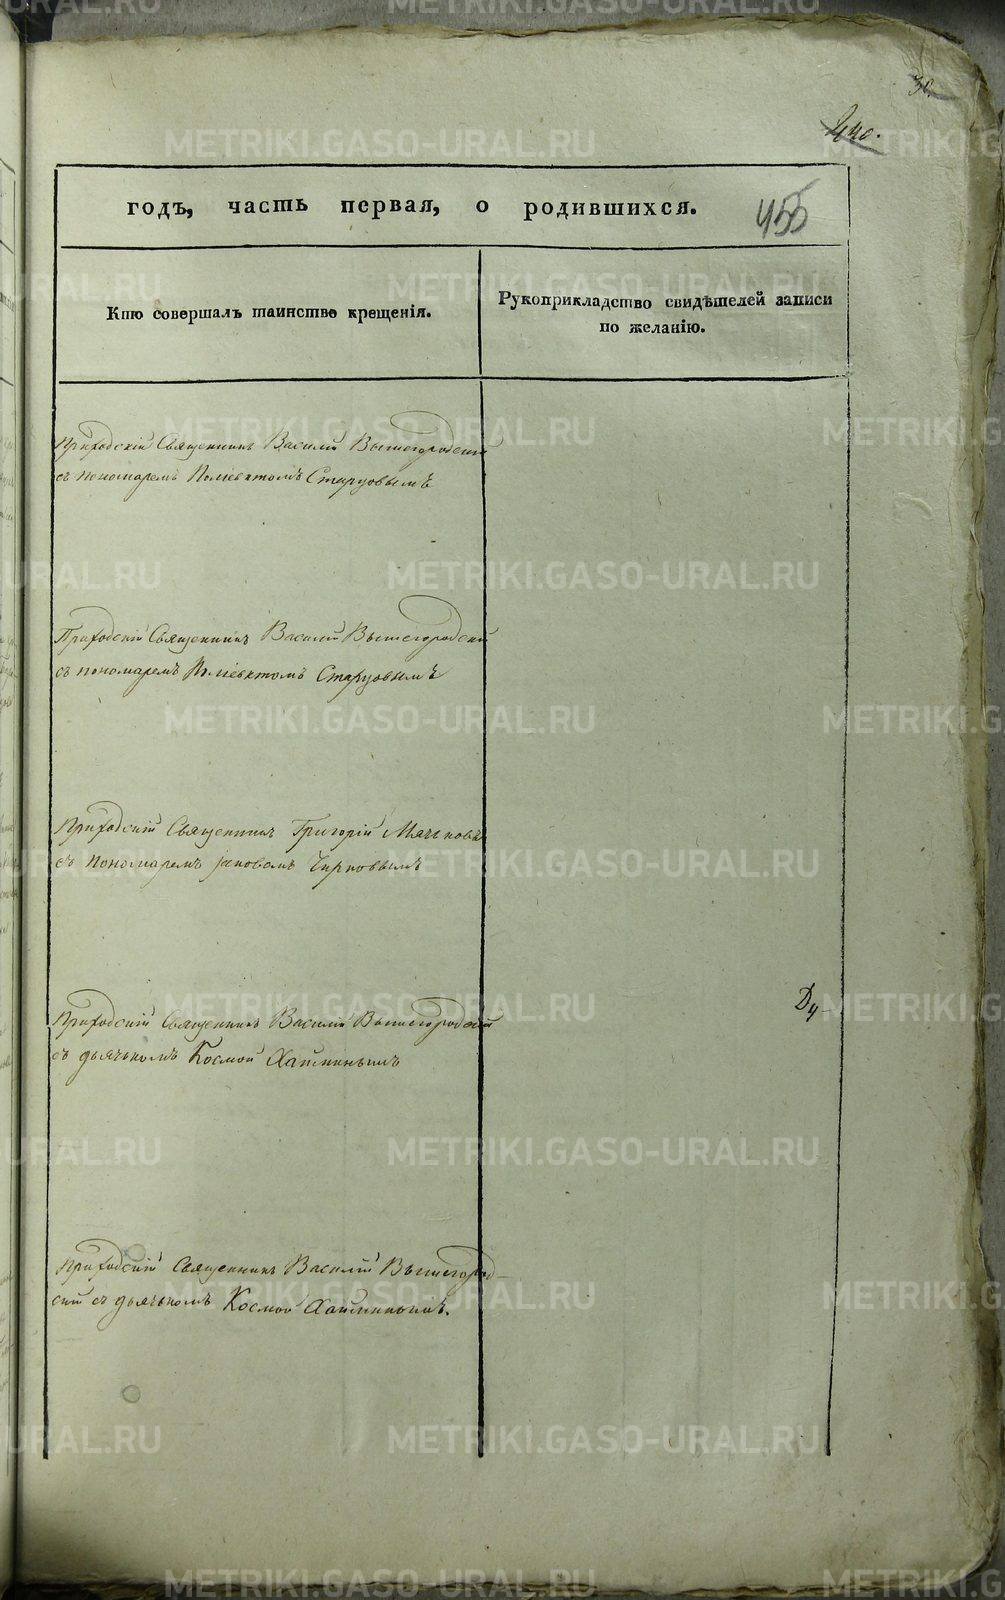 440.
годъ, часть первая, о родившихся.
455
Кто совершалъ таинство крещенія.
Рукоприкладство свидѣтелей записи
по желанію.
Приходскій Священникъ Василій Вышегородскій
съ пономаремъ Поліевктомъ Старцовымъ
Приходскій Священникъ Василій Вышегородскій
съ пономаремъ Поліевктомъ Старцовымъ
Приходскій Священникъ Григорій Мячковъ
съ Пономаремъ Чирковымъ
Приходскій Священникъ Василій Вышегородскій
съ дьячькомъ Космой
Ду
Приходскій Священникъ Василій Вышегород-
скій съ дьячькомъ Космой
METRIKI.GASO-URAL.RU